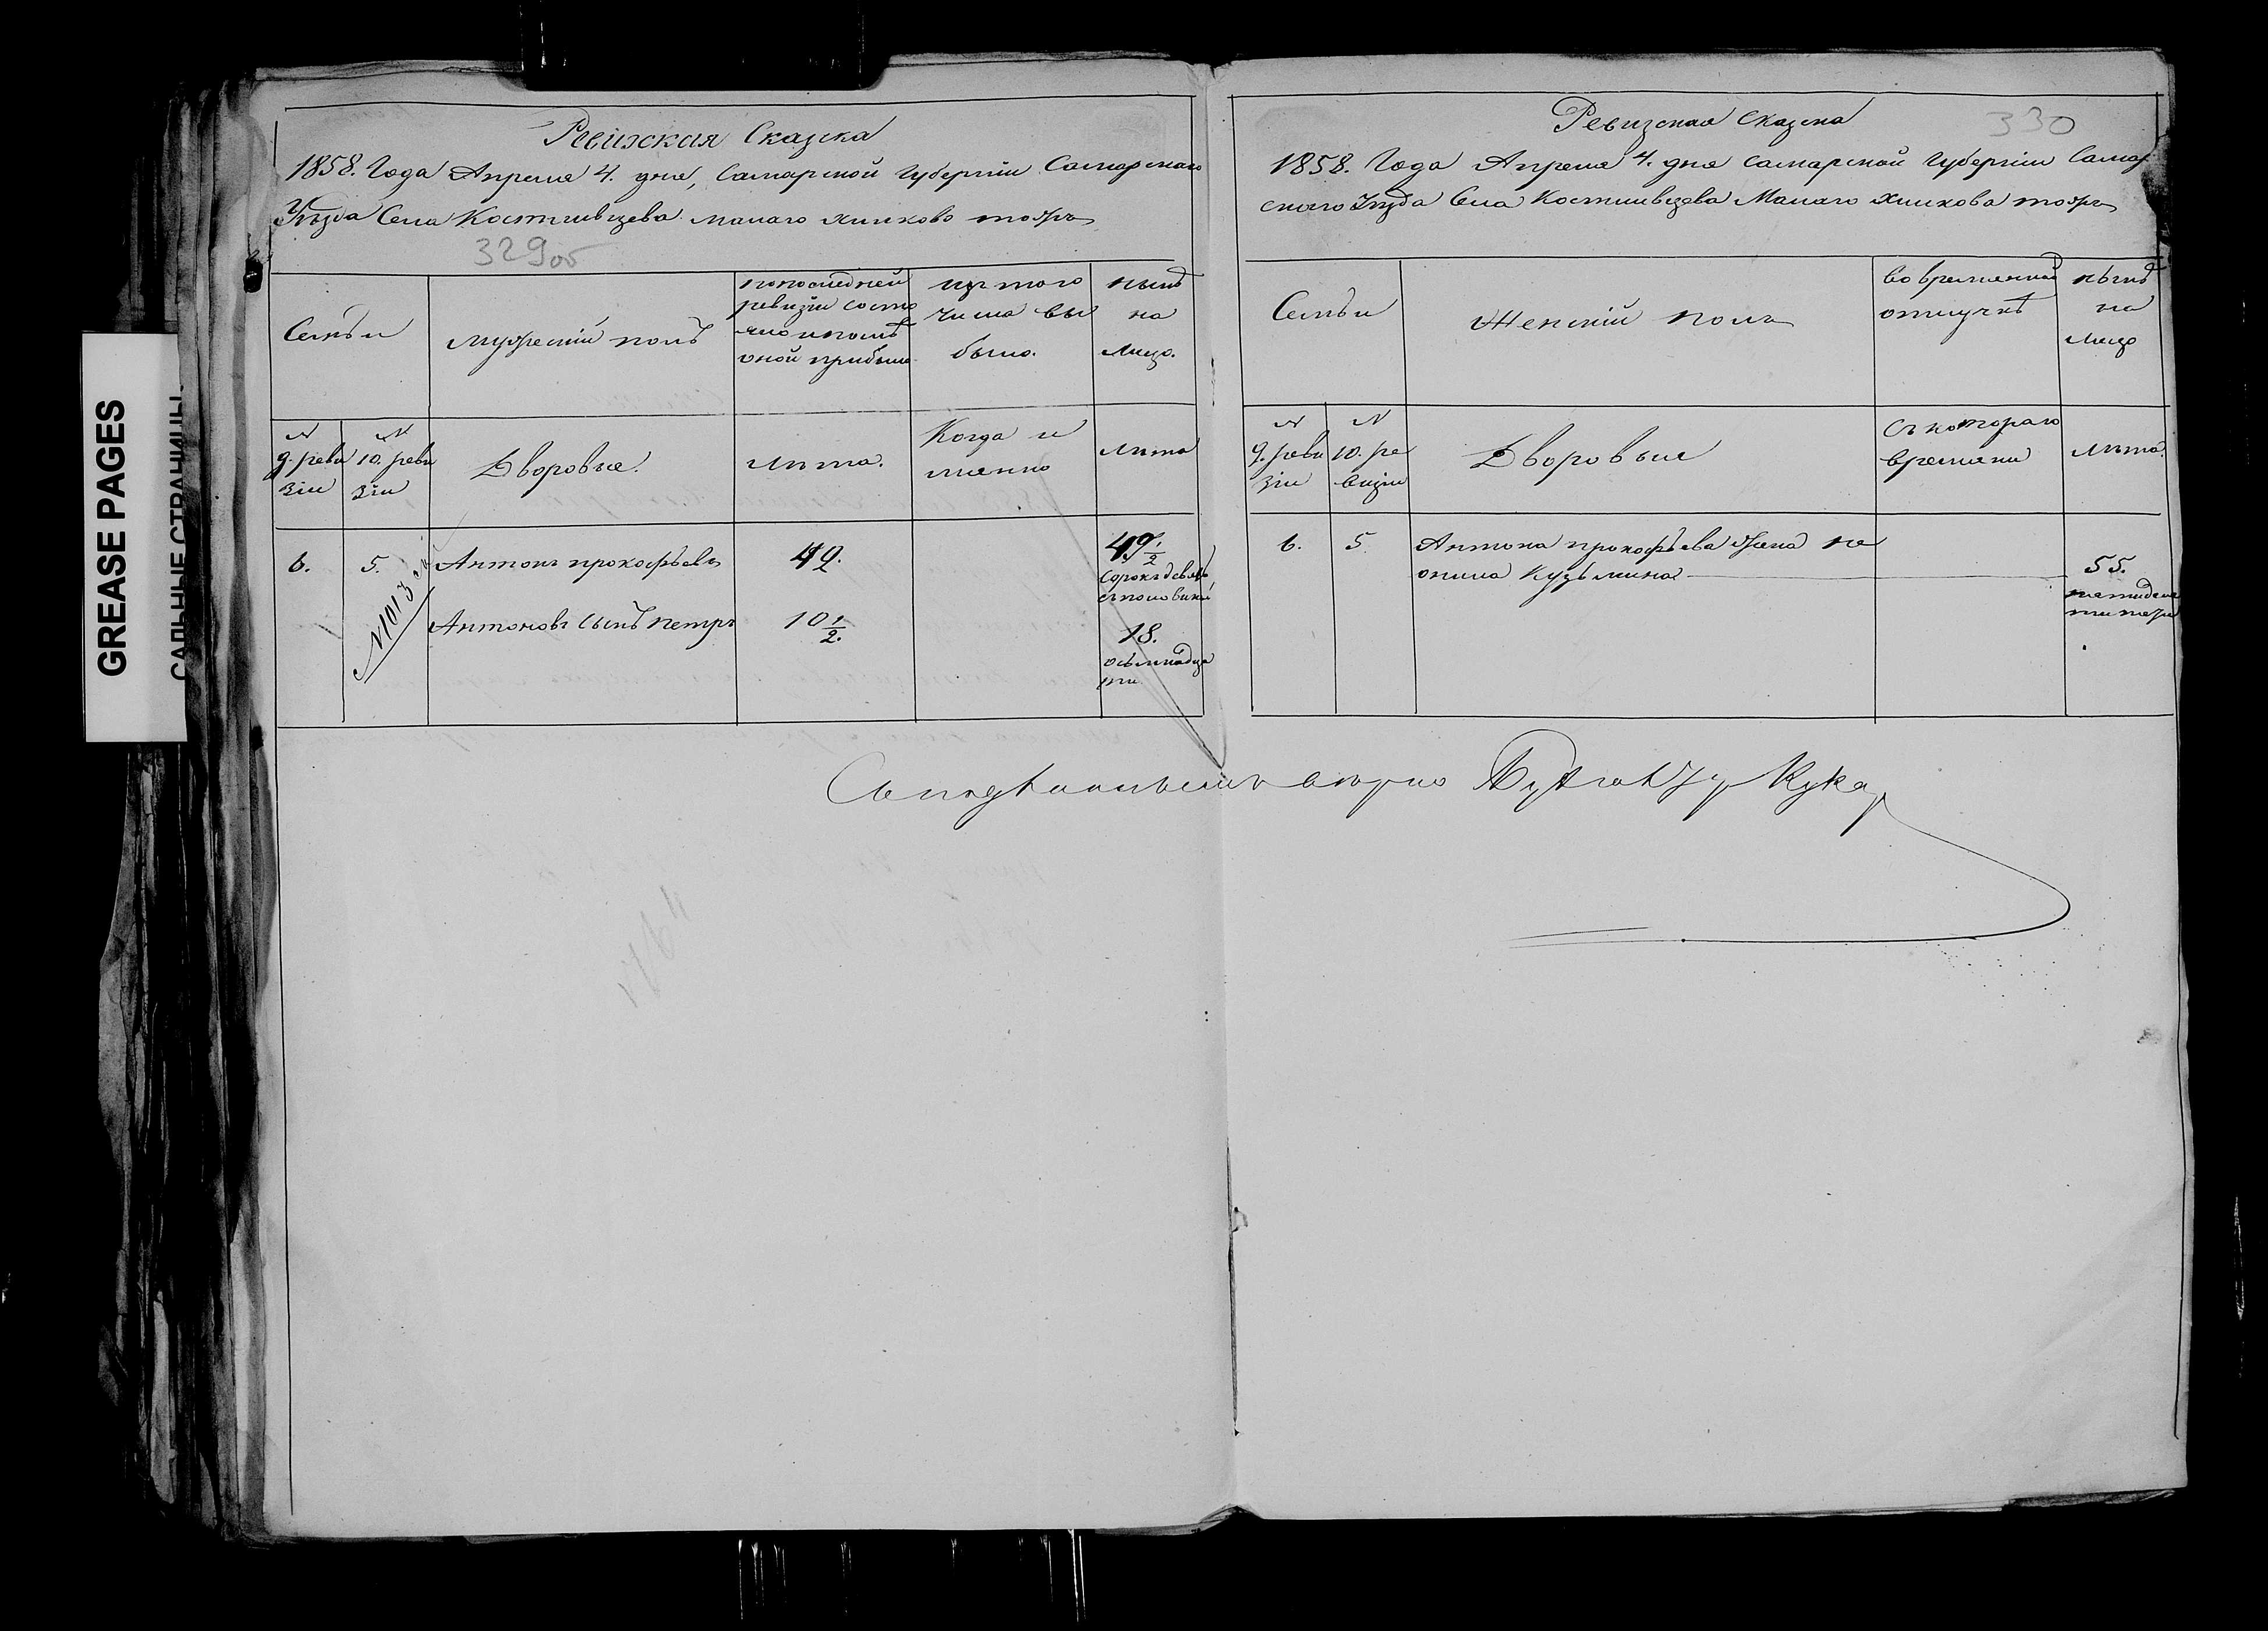 GREASE PAGES
САЛЬНЫЕ СТРАНИЦЫ
Ревизская Сказка
1858. Года Апреля 4. дня, Самарской Губернiи Самарскаго
Уѣзда Села Костилвцева малаго хилково тожъ
329 об
Семьи
мужескiй полъ
попоследней
ревизiи состо
яло ипослѣ
оной прибыло
изъ того
числа вы
было.
нынѣ
на
лицо.
N
9. реви
зiи
N
10. реви
зiи
Дворовые.
Лѣта.
Когда и
менно
Лѣта
6.
5.
N1013
Антонъ прокофьевъ
49.
49 1/2
сорокъ девять
съ половиной
Антоновъ Сынъ петръ
10 1/2.
18.
осьмнадца
ти
Ревизская Сказка
330
1858. Года Апреля 4. дня Самарской Губернiи Самар
скаго Уѣзда Села Костилвцева Малаго Хилкова тожъ
Семьи
Женскiй полъ
во временной
отлучкѣ
нынѣ
на
лицо
N
9. реви
зiи
N
10. ре
визiи
Дворовые
Съ котораго
времени
Лѣта.
6.
5
Антона прокофьева жена пе
онила Кузьмина
55.
пятидеся
ти
Съ подлиннымъ вѣрно